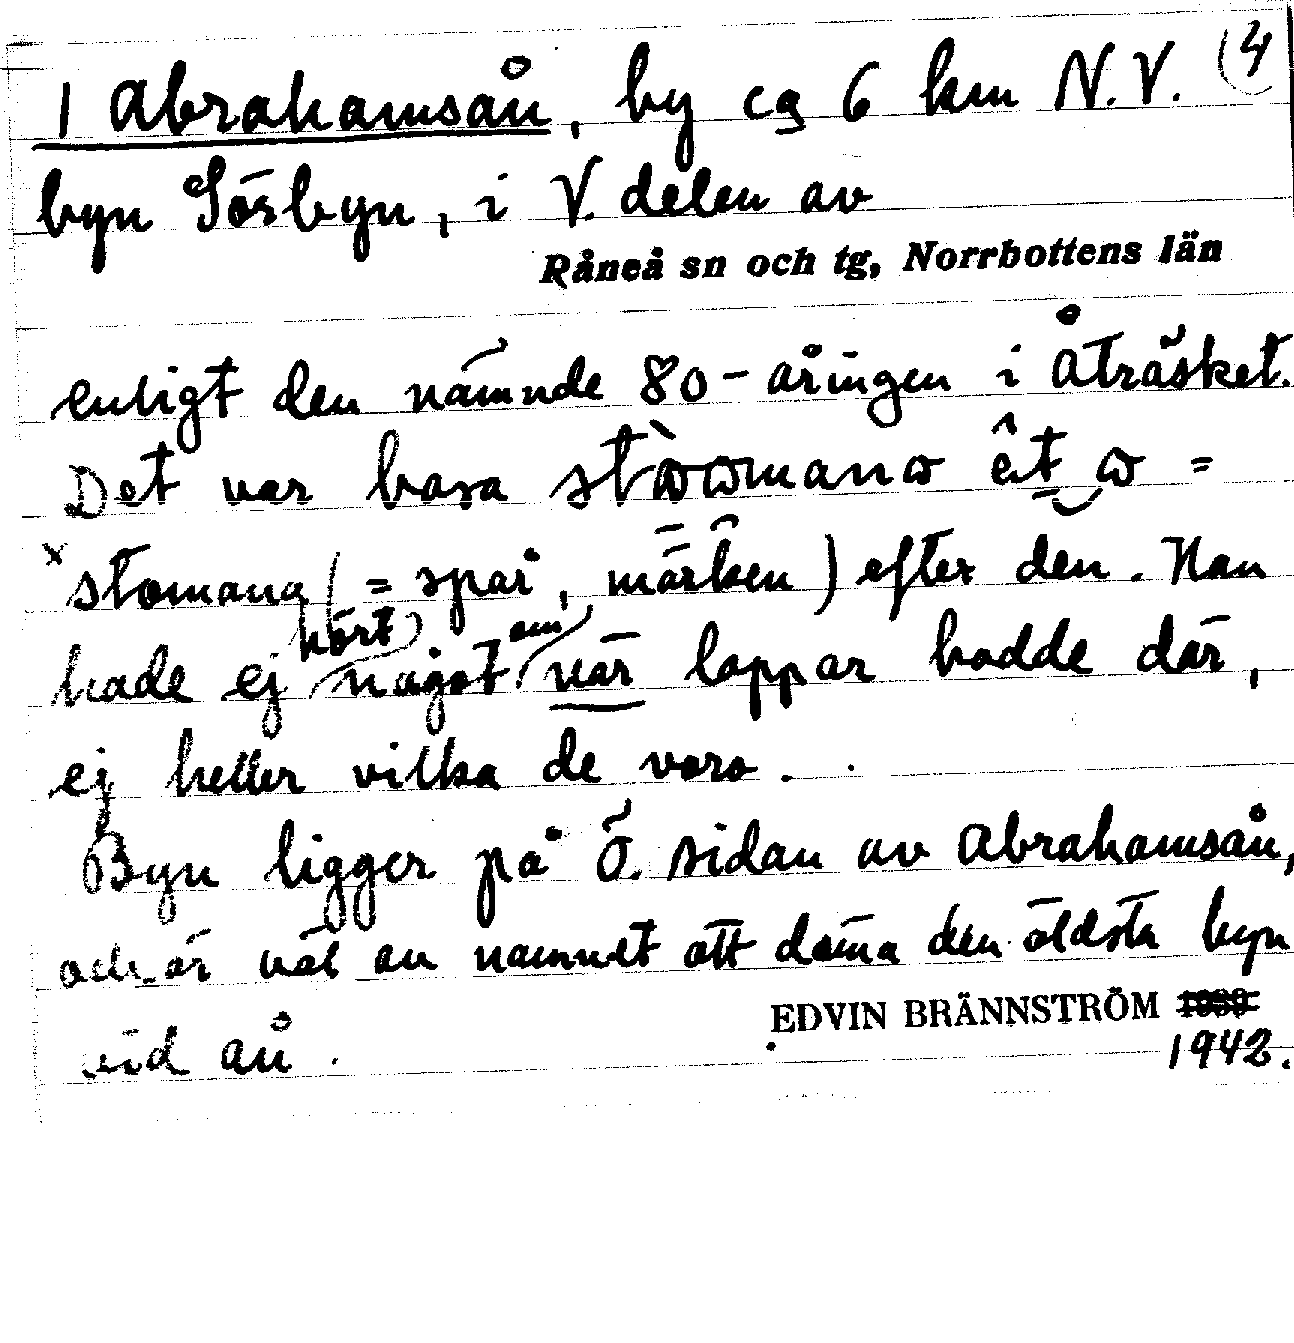 1 Abrahamsån, by ca 6 km N.V. (4
byn Sörbyn, i V. delen av
Råneå sn och tg, Norrbottens län
enligt den nämnde 80-åringen i Åträsket.
Det var bara =
stomana (= spår, märken) efter den. Han
hade ej hört något om när lappar bodde där,
ej heller vilka de voro.
Byn ligger på Ö. sidan av Abrahamsån,
och är väl av namnet att döma den äldsta byn
vid ån.
EDVIN BRÄNNSTRÖM 1939
1942.